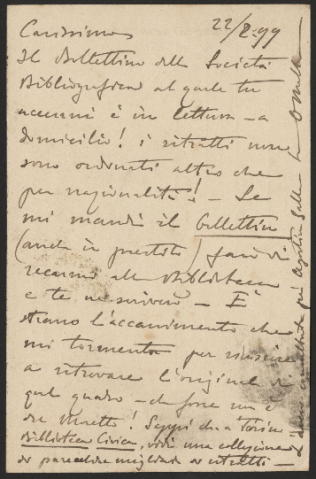 22/2.99
Carissimo
Il Bollettino della Società
Bibliografica al quale tu
accenni è in lettura - a
domicilio! i ritratti non
sono ordinati altro che
per nazionalità! - Se
mi mandi il Bollettino
(anche in prestito) farò di
recarmi alla Biblioteca
e te ne scriverò - È
strano l'accanimento che
mi tormenta per riuscire
a ritrovare l'originale di
quel quadro - che forse non è
di Moretto! Seppi che a Torino
Biblioteca Civica, vidi una collezione
di parecchie migliaia di ritratti -